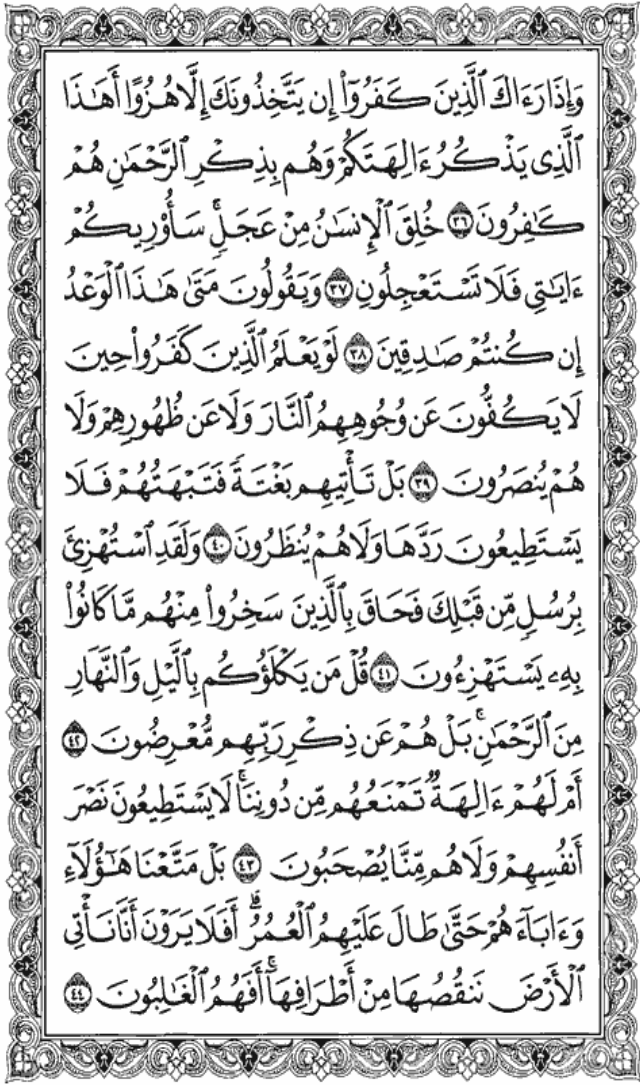 وَإِذَا رَءَاكَ ٱلَّذِينَ كَفَرُوٓا۟ إِن يَتَّخِذُونَكَ إِلَّا هُزُوًا أَهَـٰذَا
ٱلَّذِى يَذْكُرُ ءَالِهَتَكُمْ وَهُم بِذِكْرِ ٱلرَّحْمَـٰنِ هُمْ
كَـٰفِرُونَ ٣٦ خُلِقَ ٱلْإِنسَـٰنُ مِنْ عَجَلٍ ۚ سَأُو۟رِيكُمْ
ءَايَـٰتِى فَلَا تَسْتَعْجِلُونِ ٣٧ وَيَقُولُونَ مَتَىٰ هَـٰذَا ٱلْوَعْدُ
إِن كُنتُمْ صَـٰدِقِينَ ٣٨ لَوْ يَعْلَمُ ٱلَّذِينَ كَفَرُوا۟ حِينَ
لَا يَكُفُّونَ عَن وُجُوهِهِمُ ٱلنَّارَ وَلَا عَن ظُهُورِهِمْ وَلَا
هُمْ يُنصَرُونَ ٣٩ بَلْ تَأْتِيهِم بَغْتَةً فَتَبْهَتُهُمْ فَلَا
يَسْتَطِيعُونَ رَدَّهَا وَلَا هُمْ يُنظَرُونَ ٤٠ وَلَقَدِ ٱسْتُهْزِئَ
بِرُسُلٍ مِّن قَبْلِكَ فَحَاقَ بِٱلَّذِينَ سَخِرُوا۟ مِنْهُم مَّا كَانُوا۟
بِهِۦ يَسْتَهْزِءُونَ ٤١ قُلْ مَن يَكْلَؤُكُم بِٱلَّيْلِ وَٱلنَّهَارِ
مِنَ ٱلرَّحْمَـٰنِ ۚ بَلْ هُمْ عَن ذِكْرِ رَبِّهِم مُّعْرِضُونَ ٤٢
أَمْ لَهُمْ ءَالِهَةٌ تَمْنَعُهُم مِّن دُونِنَا ۚ لَا يَسْتَطِيعُونَ نَصْرَ
أَنفُسِهِمْ وَلَا هُم مِّنَّا يُصْحَبُونَ ٤٣ بَلْ مَتَّعْنَا هَـٰٓؤُلَآءِ
وَءَابَآءَهُمْ حَتَّىٰ طَالَ عَلَيْهِمُ ٱلْعُمُرُ ۗ أَفَلَا يَرَوْنَ أَنَّا نَأْتِى
ٱلْأَرْضَ نَنقُصُهَا مِنْ أَطْرَافِهَآ ۚ أَفَهُمُ ٱلْغَـٰلِبُونَ ٤٤